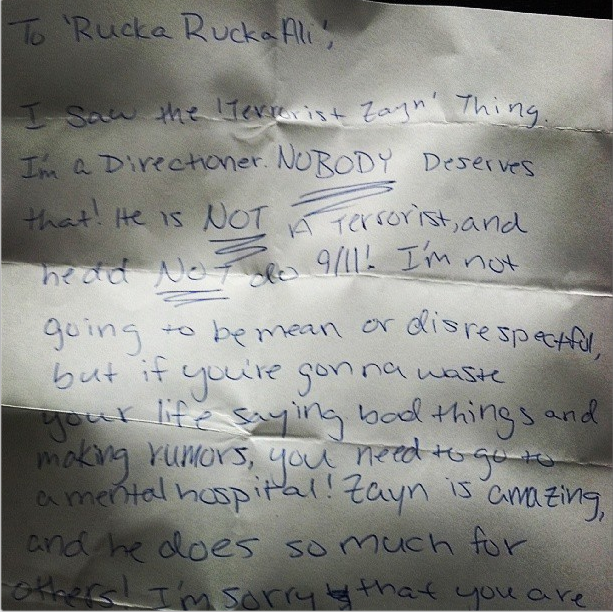 To 'Rucka Rucka Ali',
I saw the 'Terrorist Zayn' Thing.
I'm a Directioner. NOBODY Deserves
that! He is NOT A Terrorist, and
he did NOT do 9/11! I'm not
going to be mean or disrespectful,
but if you're gonna waste
your life saying bad things and
making rumors, you need to go to
a mental hospital! Zayn is amazing,
and he does so much for
others! I'm sorry that you are